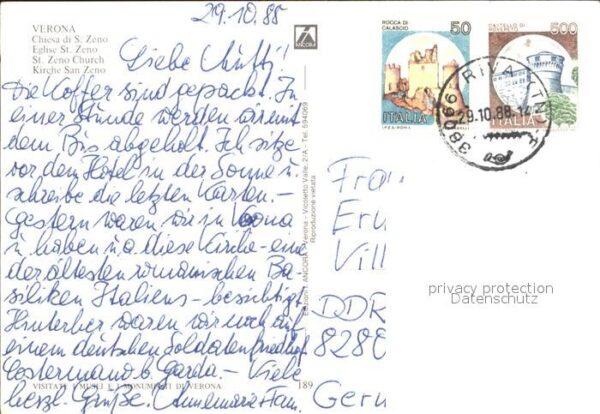 29.10.88
VERONA
Chiesa di S. Zeno
Eglise St. Zeno
St. Zeno Church
Kirche San Zeno
Liebe Mutti!
Die Koffer sind gepackt. In
einer Stunde werden wir mit
dem Bis abgeholt. Ich sitze
vor dem Hotel in der Sonne u.
schreibe die letzten Karten. –
Gestern waren wir in Verona
u. haben u. a. diese Kirche – eine
der ältesten romanischen Ba-
siliken Italiens – besichtigt.
Hinterher waren wir noch auf
einem deutschen Soldatenfriedhof
Costermano b. Garda. – Viele
herzl. Grüße! Annemarie + Fam.
VISITATE I MUSEI E I MONUMENTI DI VERONA
189
ANCORA
Edizioni ANCORA - Verona - Vicoletto Valle, 2/A - Tel. 594069
Riproduzione vietata
ROCCA DI
CALASCIO
50
ITALIA
I.P.Z.S. - ROMA
CASTELLO DI
ROVERETO
500
ITALIA
38066 RIVA
29.10.88
Fra
Eru
Vill
DDR
8280
Germ
privacy protection
Datenschutz